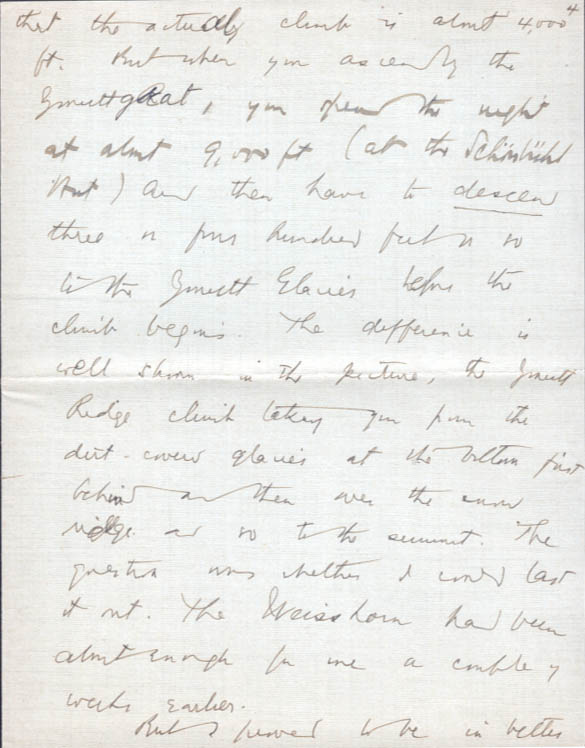 4
that the actually climb is almost 4,000
ft. But when you ascend by the
Zmuttgrat, you spend the night
at about 9,000 ft (at the Schönbühl
Hut) and then have to descend
three or four hundred feet or so
to the Zmutt Glacier before the
climb begins. The difference is
well shown in the picture, the Zmutt
Ridge climb taking you from the
dirt-covered glacier at the bottom first
behind and then over the snow
ridge and so to the summit. The
question was whether I could last
it out. The Weisshorn had been
almost enough for me a couple of
weeks earlier.
But I proved to be in better